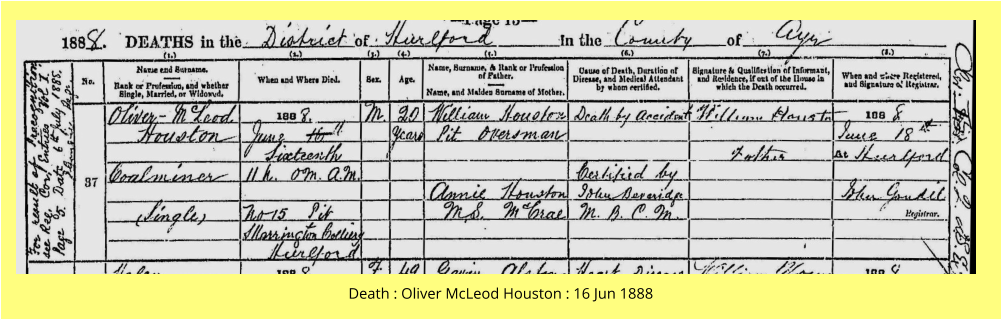 Page 13
1888. DEATHS in the District of Hurlford In the County of Ayr
(1.) (2.) (3.) (4.) (5.) (6.) (7.) (8.)
No. Name and Surname. Rank or Profession, and whether Single, Married, or Widowed. When and Where Died. Sex. Age. Name, Surname, & Rank or Profession of Father. Name, and Maiden Surname of Mother. Cause of Death, Duration of Disease, and Medical Attendant by whom certified. Signature & Qualification of Informant, and Residence, if out of the House in which the Death occurred. When and where Registered, and Signature of Registrar.
Oliver McLeod 1888. M. 20 William Houston Death by Accident William Houston 1888
Houston June Years Pit Oversman June 18th
Sixteenth Father At Hurlford
37 Coalminer 11 h. 0 m. A.M. Certified by
Annie Houston John
(Single) No 15 Pit M.S. McCrae M.B. C.M. Registrar.
Colliery
Hurlford
For result of Precognition
see Reg. Cor. Entries Vol I
Page 5. Date 6th July 1888.
1888 F 49 1888
Death : Oliver McLeod Houston : 16 Jun 1888